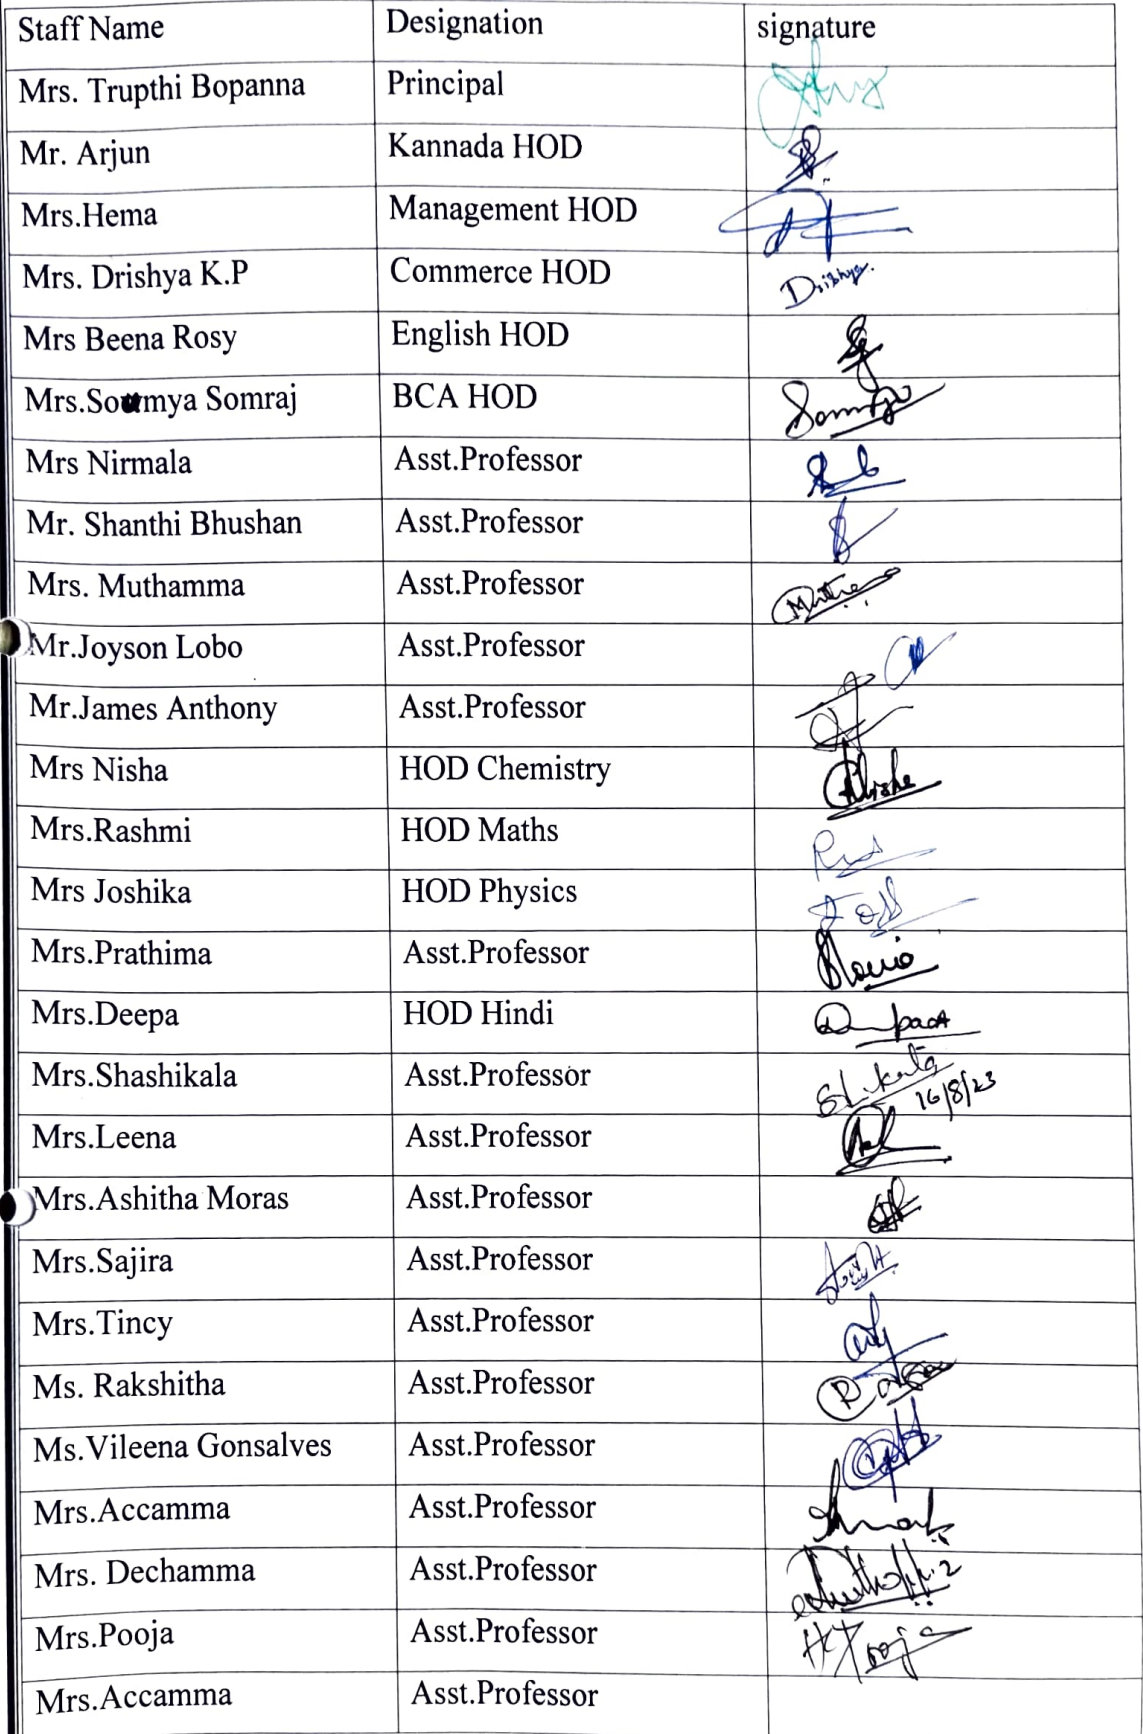 Staff Name Designation signature
Mrs. Trupthi Bopanna Principal
Mr. Arjun Kannada HOD
Mrs.Hema Management HOD
Mrs. Drishya K.P Commerce HOD Drishya.
Mrs Beena Rosy English HOD
Mrs.Soumya Somraj BCA HOD
Mrs Nirmala Asst.Professor
Mr. Shanthi Bhushan Asst.Professor
Mrs. Muthamma Asst.Professor
Mr.Joyson Lobo Asst.Professor
Mr.James Anthony Asst.Professor
Mrs Nisha HOD Chemistry
Mrs.Rashmi HOD Maths
Mrs Joshika HOD Physics
Mrs.Prathima Asst.Professor
Mrs.Deepa HOD Hindi
Mrs.Shashikala Asst.Professor 16/8/23
Mrs.Leena Asst.Professor
Mrs.Ashitha Moras Asst.Professor
Mrs.Sajira Asst.Professor
Mrs.Tincy Asst.Professor
Ms. Rakshitha Asst.Professor
Ms.Vileena Gonsalves Asst.Professor
Mrs.Accamma Asst.Professor
Mrs. Dechamma Asst.Professor
Mrs.Pooja Asst.Professor
Mrs.Accamma Asst.Professor